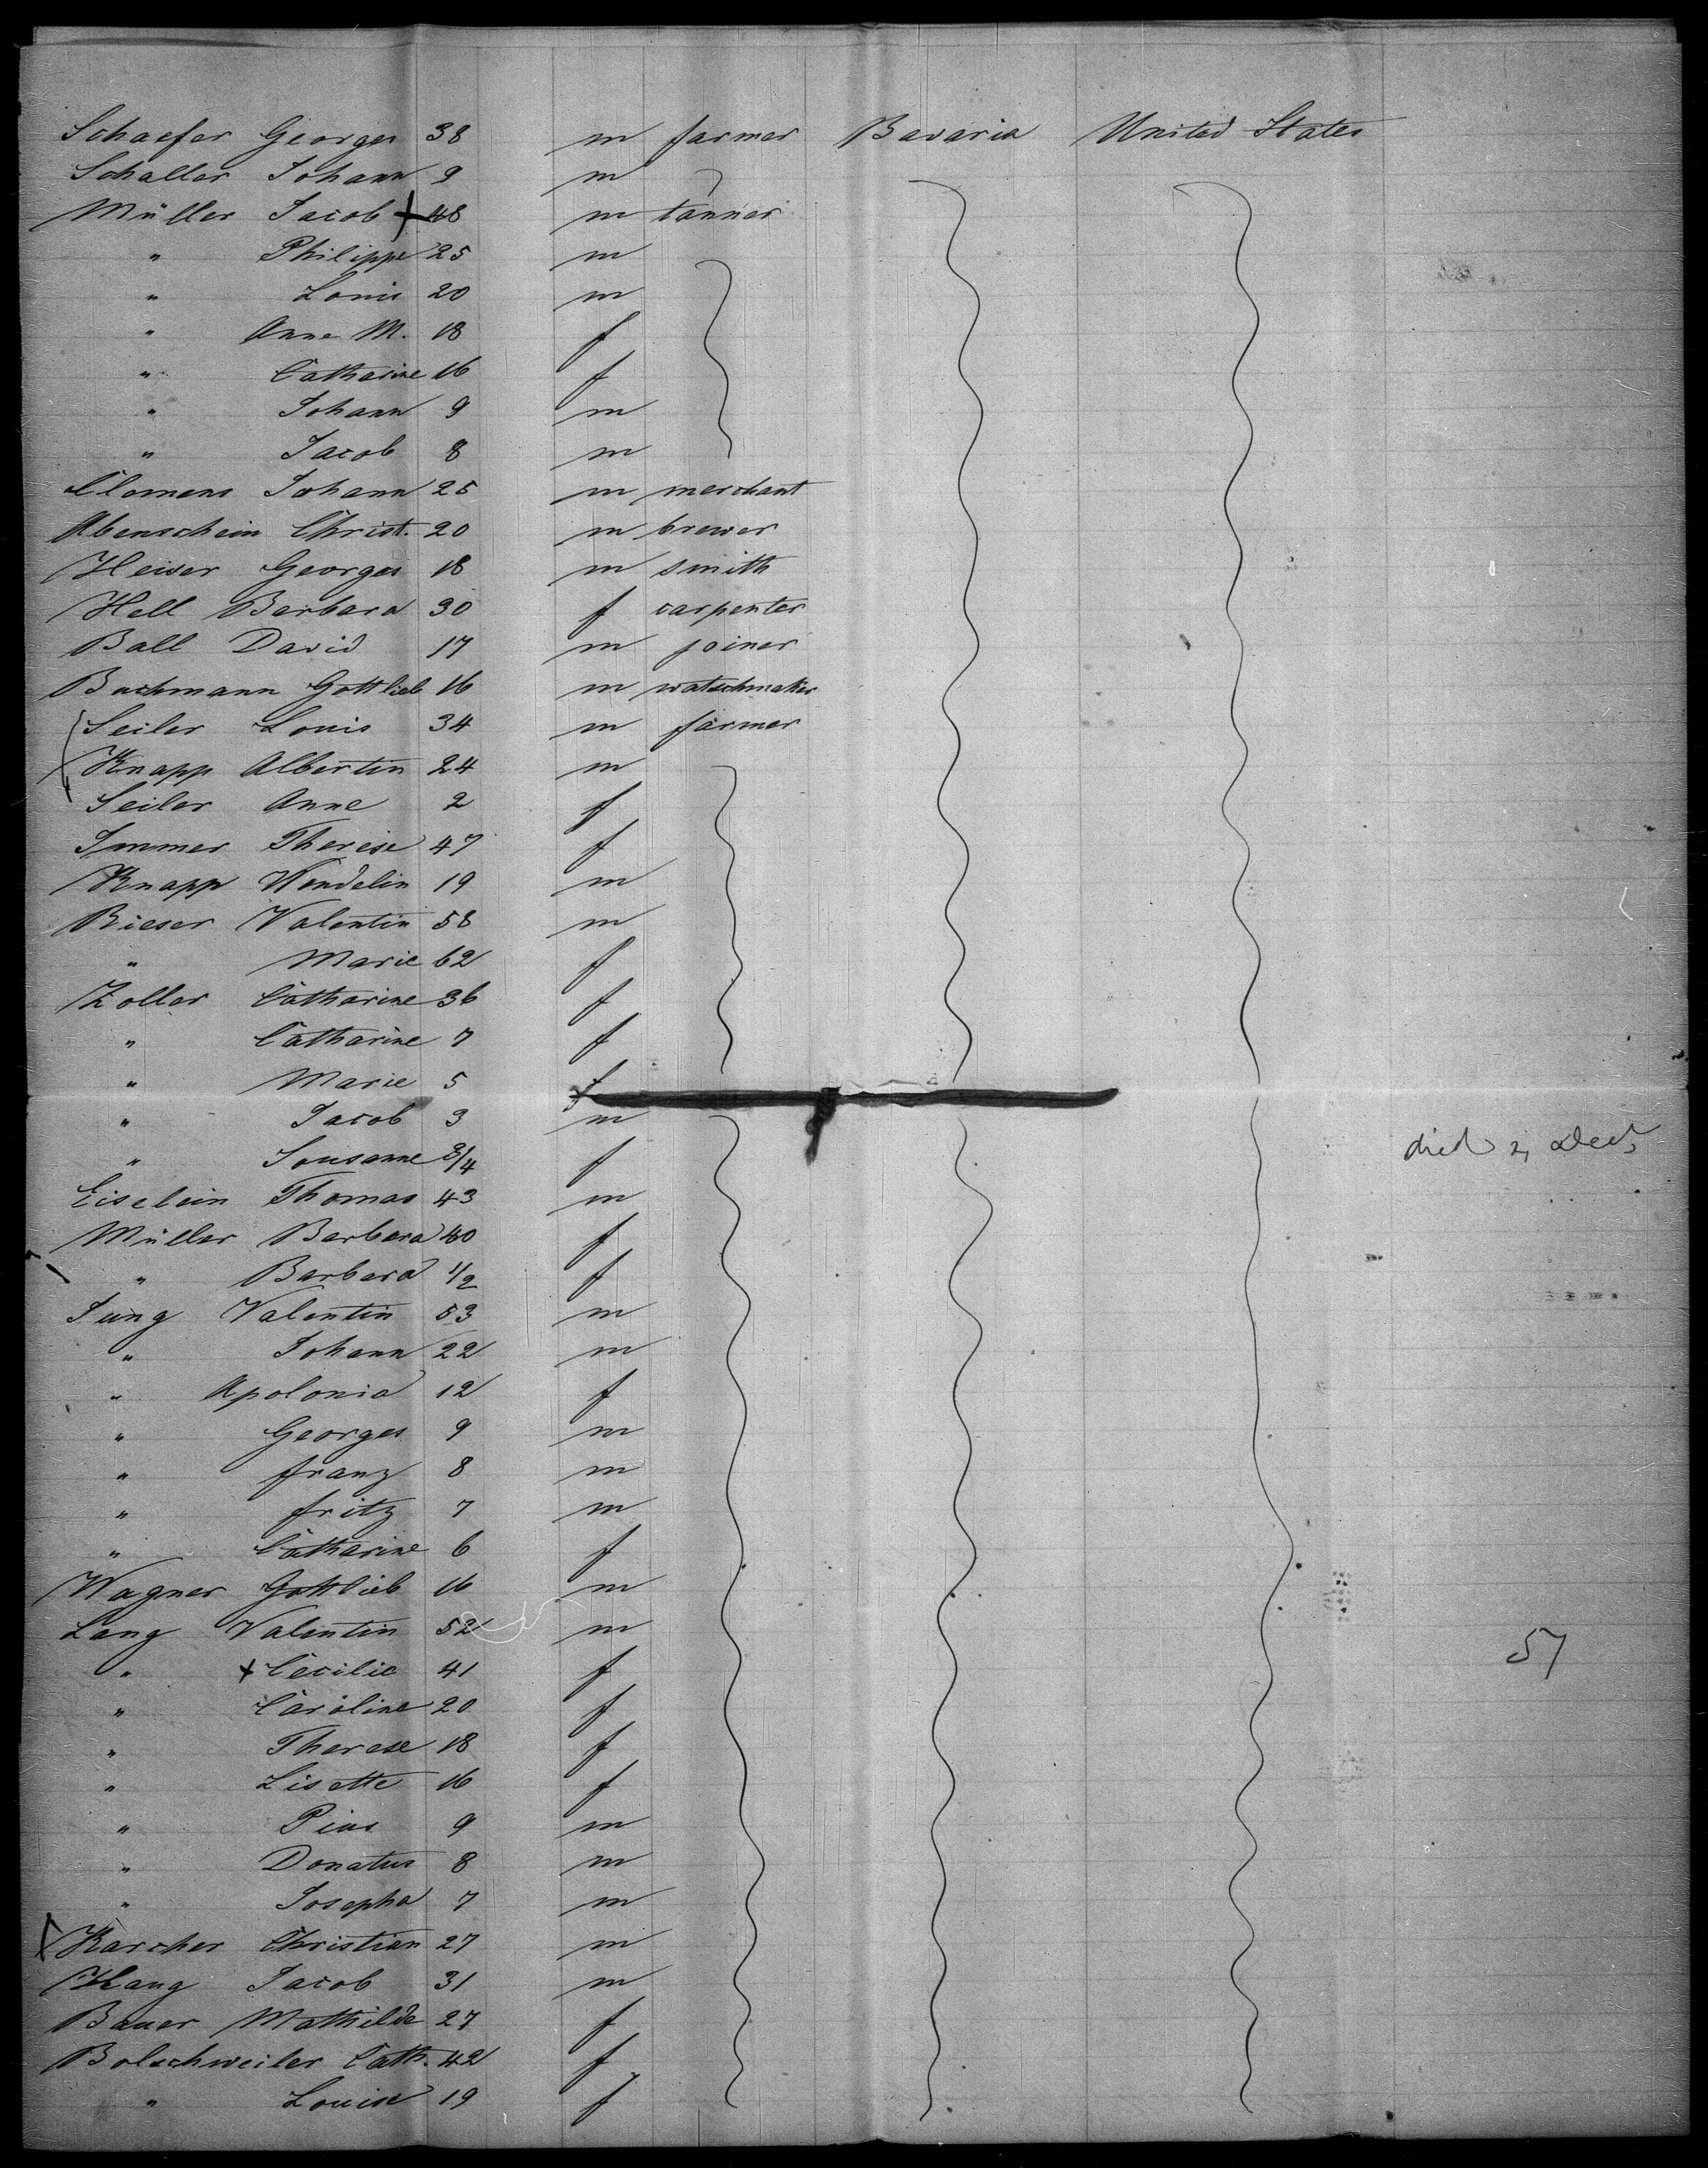 Schaefer Georges 38 m farmer Bavaria United States
Schaller Johann 9 m
Müller Jacob 48 m tanner
" Philippe 25 m
" Louis 20 m
" Anne M. 18 f
" Catharine 16 f
" Johann 9 m
" Jacob 8 m
Clemens Johann 25 m merchant
Abenschein Christ. 20 m brewer
Heiser Georges 18 m smith
Hell Barbara 30 f carpenter
Ball David 17 m joiner
Bachmann Gottlieb 16 m watschmaker
Seiler Louis 34 m farmer
Knapp Albertin 24 m
Seiler Anne 2 f
Immer Therese 47 f
Knapp Wendelin 19 m
Rieser Valentin 58 m
" Marie 62 f
Zoller Catharine 36 f
" Catharine 7 f
" Marie 5 f
" Jacob 3 m
" Sousanne 3/4 f died 2, Dec,
Eiselein Thomas 43 m
Müller Barbara 40 f
" Barbara 1/2 f
Jung Valentin 53 m
" Johann 22 m
" Apolonia 12 f
" Georges 9 m
" franz 8 m
" fritz 7 m
" Catharine 6 f
Wagner Gottlieb 16 m
Lang Valentin 52 m 57
" Cecilie 41 f
" Caroline 20 f
" Therese 18 f
" Lisette 16 f
" Pius 9 m
" Donatus 8 m
" Josepha 7 m
Karcher Christian 27 m
Jacob 31 m
Bauer Mathilde 27 f
Bolschweiler Cath. 42 f
" Louise 19 f